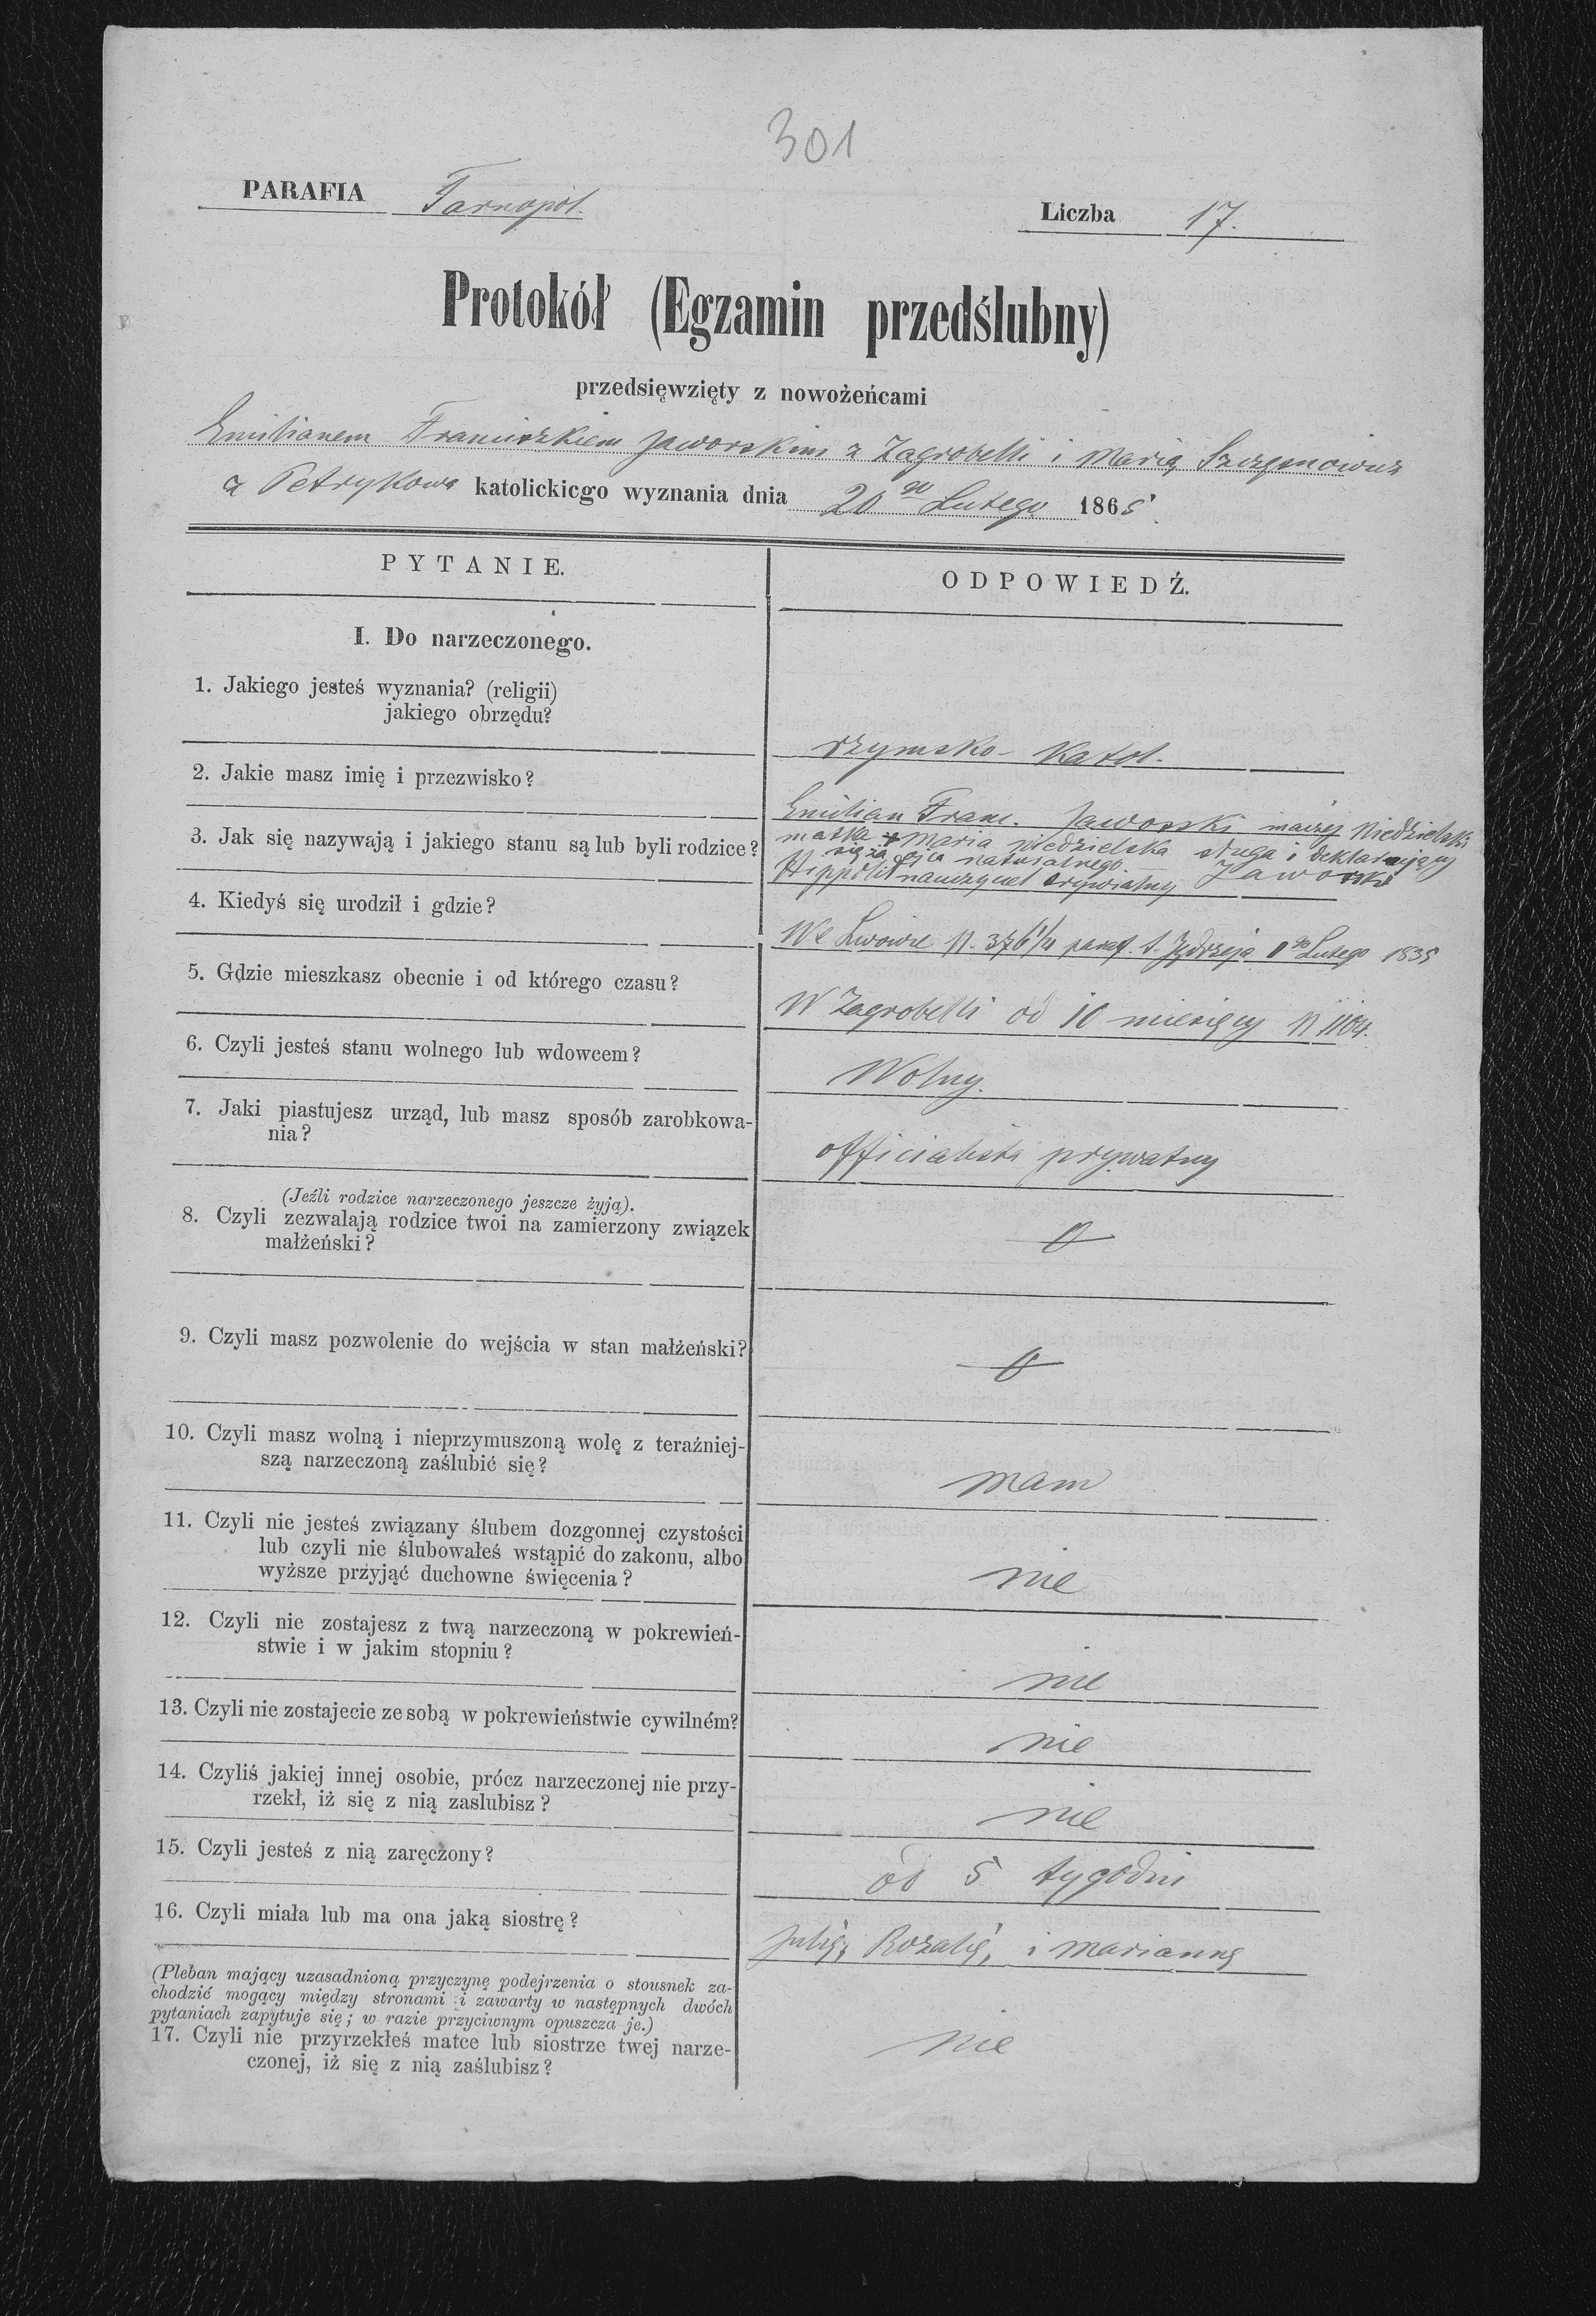 301
PARAFIA Tarnopol.
Liczba 17.
Protokół (Egzamin przedślubny)
przedsięwzięty z nowożeńcami
Emilianem Franciszkiem Jaworskim z Zagrobelli i Marią
z Petrykowa katolickiego wyznania dnia 20go Lutego 1865.
PYTANIE.
ODPOWIEDŹ.
I. Do narzeczonego.
1. Jakiego jesteś wyznania? (religii)
jakiego obrzędu?
rzymsko-katol.
2. Jakie masz imię i przezwisko?
Emilian Franc. Jaworski inaczej Niedzielski
3. Jak się nazywają i jakiego stanu są lub byli rodzice?
matka + Maria Niedzielska sługa i deklarujący
się za ojca naturalnego
Hippolit nauczyciel trywialny Jaworski
4. Kiedyś się urodził i gdzie?
We Lwowie N. 376 1/4 paraf. Ś. Jędrzeja Lutego 1835
5. Gdzie mieszkasz obecnie i od którego czasu?
W Zagrobelli od 10 miesięcy N
6. Czyli jesteś stanu wolnego lub wdowcem?
Wolny.
7. Jaki piastujesz urząd, lub masz sposób zarobkowa-
nia?
officialista prywatny
(Jeźli rodzice narzeczonego jeszcze żyją).
8. Czyli zezwalają rodzice twoi na zamierzony związek
małżeński?
9. Czyli masz pozwolenie do wejścia w stan małżeński?
10. Czyli masz wolną i nieprzymuszoną wolę z teraźniej-
szą narzeczoną zaślubić się?
mam
11. Czyli nie jesteś związany ślubem dozgonnej czystości
lub czyli nie ślubowałeś wstąpić do zakonu, albo
wyższe przyjąć duchowne święcenia?
nie
12. Czyli nie zostajesz z twą narzeczoną w pokrewień-
stwie i w jakim stopniu?
nie
13. Czyli nie zostajecie ze sobą w pokrewieństwie cywilném?
nie
14. Czyliś jakiej innej osobie, prócz narzeczonej nie przy-
rzekł, iż się z nią zaslubisz?
nie
15. Czyli jesteś z nią zaręczony?
od 5 tygodni
16. Czyli miała lub ma ona jaką siostrę?
Julię, Rozalię, i Mariannę
(Pleban mający uzasadnioną przyczynę podejrzenia o stousnek za-
chodzić mogący między stronami i zawarty w następnych dwóch
pytaniach zapytuje się; w razie przyciwnym opuszcza je.)
17. Czyli nie przyrzekłeś matce lub siostrze twej narze-
czonej, iż się z nią zaślubisz?
nie